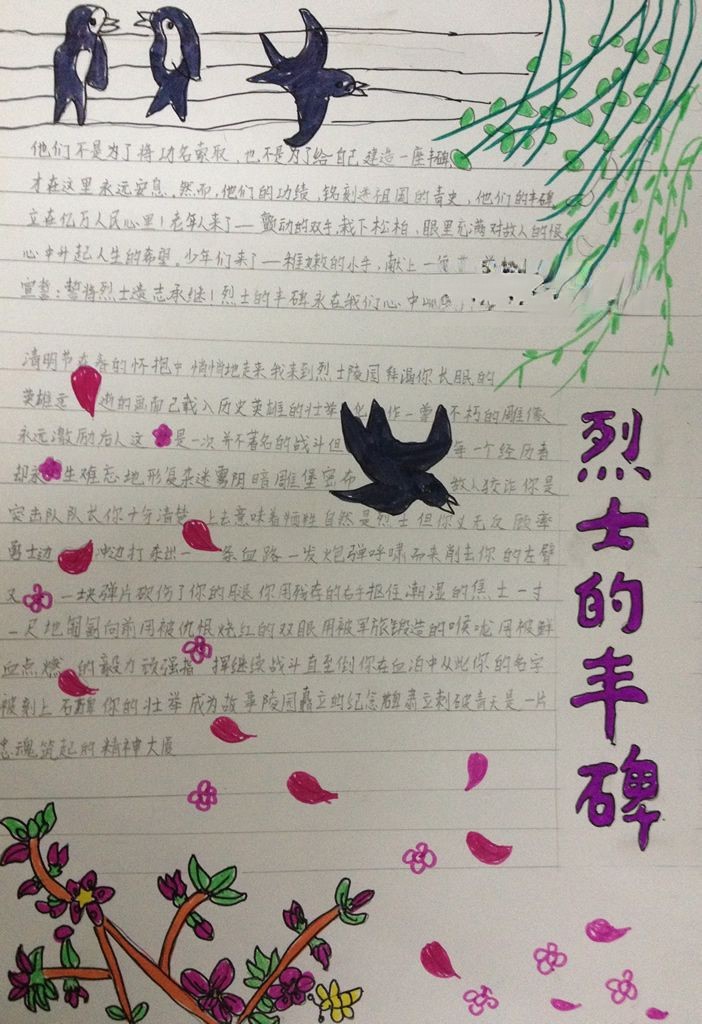 他们不是为了将功名索取，也不是为了给自己建造一座丰碑
才在这里永远安息。然而，他们的功绩，铭刻进祖国的青史，他们的丰碑
立在亿万人民心里！老年人来了——颤动的双手，栽下松柏，眼里充满对故人的
心中升起人生的希望。少年们来了——稚嫩的小手，献上一
宣誓：誓将烈士遗志承继！烈士的丰碑永在我们心中
清明节在春的怀抱中悄悄地走来我来到烈士陵园拜谒你长眠的
英雄远逝的画面已载入历史英雄的壮举化作一尊不朽的雕像
永远激励后人这是一次并不著名的战斗但每一个经历者
却永生难忘地形复杂迷雾阴暗雕堡密布敌人狡诈你是
突击队队长你十分清楚上去意味着牺牲自然是烈士但你义无反顾率
勇士边冲边打杀出一条血路一发炮弹呼啸而来削去你的左臂
又一块弹片砍伤了你的腿你用残存的右手抠住潮湿的焦土一寸
一尺地匍匐向前用被仇恨烧红的双眼用被军旅锻造的喉咙用被鲜
血点燃的毅力顽强指挥继续战斗直至倒你在血泊中从此你的名字
被刻上石碑你的壮举成为故事陵园矗立的纪念碑肃立刺破青天是一片
忠魂筑起的精神大厦
烈士的丰碑